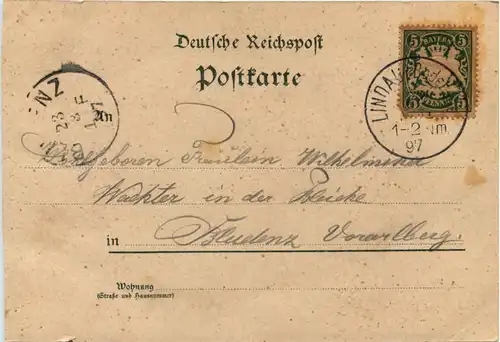 Deutsche Reichspost
Postkarte
5 BAYERN 5
5 PFENNIG 5
LINDAU
1-2 Nm.
97
NZ
28
8
F
An
Fräulein Wilhelmine
in der Bleiche
in Bludenz Vorarlberg.
Wohnung
(Straße und Hausnummer)